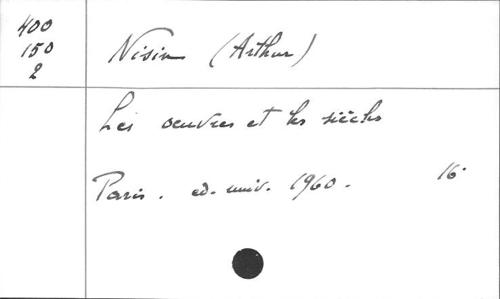 400
150
2
Nisin (Arthur)
Les oeuvres et les siècles
Paris. ed. univ. 1960. 16°